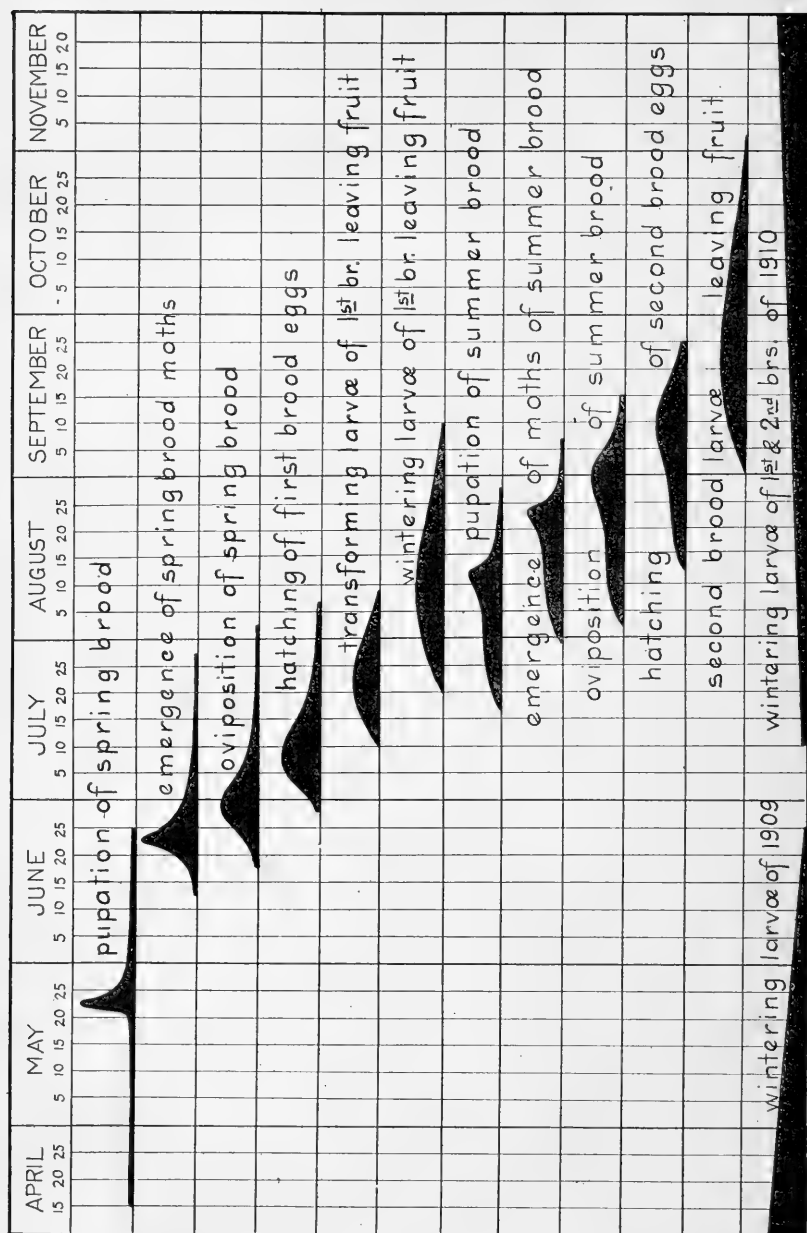 APRIL MAY JUNE JULY AUGUST SEPTEMBER OCTOBER NOVEMBER
15 20 25 5 10 15 20 25 5 10 15 20 25 5 10 15 20 25 5 10 15 20 25 5 10 15 20 25 5 10 15 20 25 5 10 15 20
pupation of spring brood
emergence of spring brood moths
oviposition of spring brood
hatching of first brood eggs
transforming larvæ of 1st br. leaving fruit
wintering larvæ of 1st br. leaving fruit
pupation of summer brood
emergence of moths of summer brood
oviposition of summer brood
hatching of second brood eggs
second brood larvæ leaving fruit
wintering larvæ of 1909 wintering larvæ of 1st & 2nd brs. of 1910